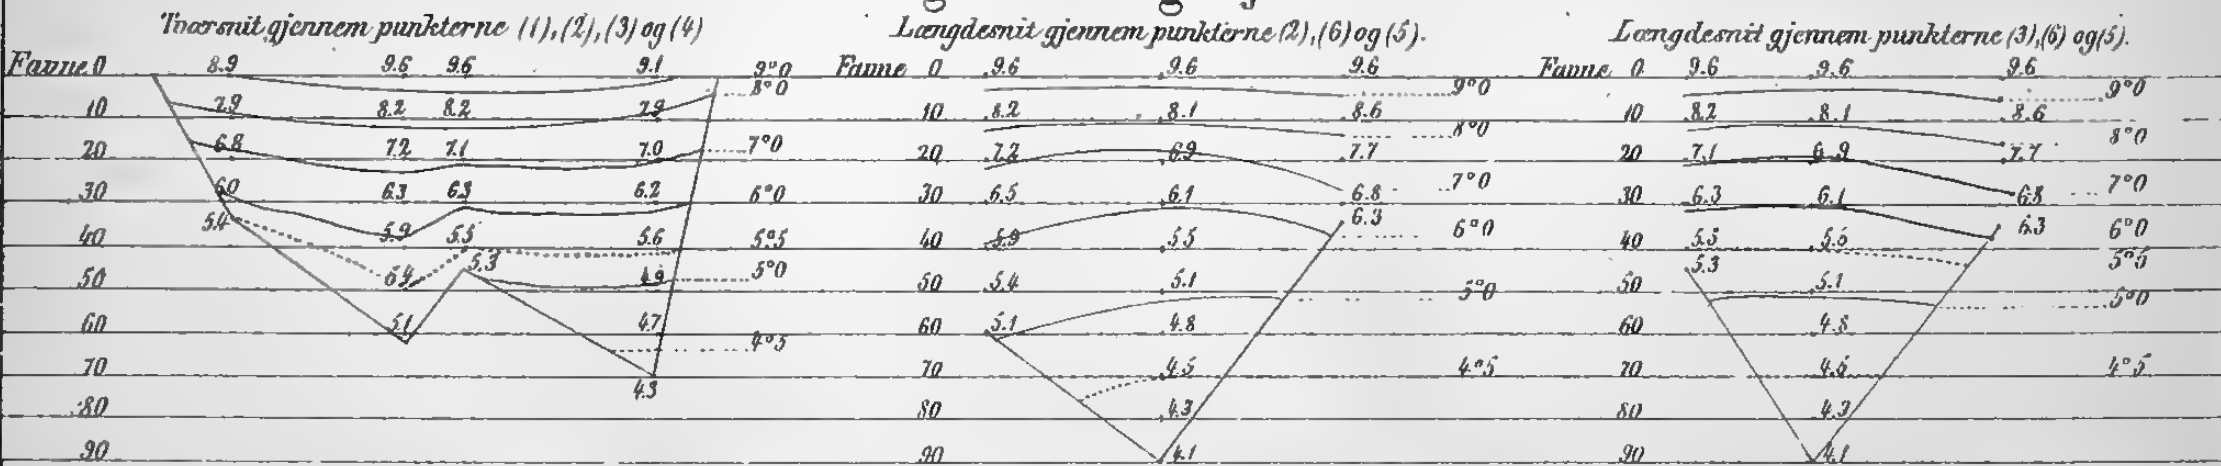 Tværsnit gjennem punkterne (1), (2), (3) og (4)
Favne 0 8.9 9.6 9.6 9.1 9°0
8°0
10 7.9 8.2 8.2 7.9
20 6.8 7.2 7.1 7.0 7°0
30 6.0 6.3 6.3 6.2 6°0
5.4
40 5.9 5.5 5.6 5°5
5.3
50 4.9 5°0
60 5.1 4.7
4°5
70
4.3
80
90
Længdesnit gjennem punkterne (2), (6) og (5).
Favne 0 9.6 9.6 9.6
9°0
10 8.2 8.1 8.6
8°0
20 7.2 6.9 7.7
7°0
30 6.5 6.1 6.8
6.3
6°0
40 5.9 5.5
50 5.4 5.1
5°0
60 5.1 4.8
70 4.5 4°5
80 4.3
90 4.1
Længdesnit gjennem punkterne (3), (6) og (5).
Favne 0 9.6 9.6 9.6
9°0
10 8.2 8.1 8.6
8°0
20 7.1 6.9 7.7
7°0
30 6.3 6.1 6.8
6.3 6°0
40 5.5 5.5
5.3 5°5
50 5.1
5°0
60 4.8
70 4.5 4°5
80 4.3
90 4.1